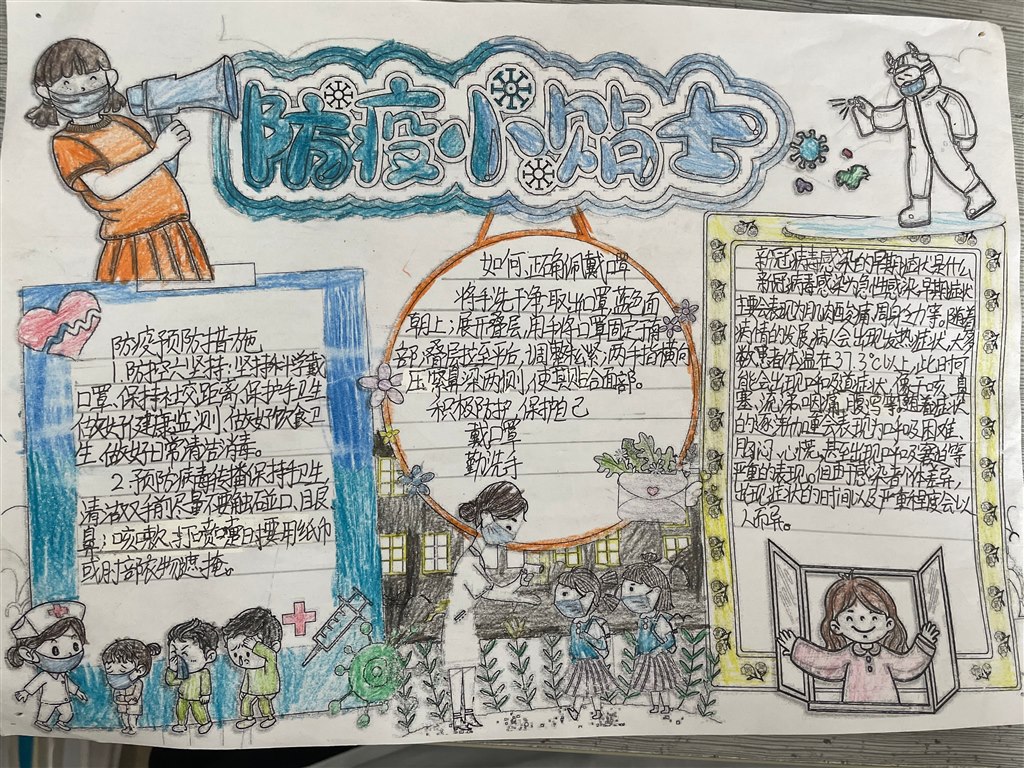 防疫小贴士
防疫预防措施
1.防控六坚持:坚持科学戴
口罩,保持社交距离,保护手卫生
做好健康监测,做好饮食卫
生,做好日常清洁消毒。
2.预防病毒传播保持手卫生,
清洁双手前尽量不要触碰口、目艮
鼻;咳嗽、打喷嚏时要用纸巾
或肘部衣物遮掩。
如何正确佩戴口罩
将手洗干净,取出口罩,蓝色面
朝上;展开叠层,用手将口罩固定于面
部;叠层拉至平后,调整松紧;两手指横向
压紧鼻梁两侧,使罩贴合面部。
积极防护,保护自己
戴口罩
勤洗手
新冠病毒感染的早期症状是什么
新冠病毒感染为急性感染,早期症状
主要会表现为肌肉酸痛,周身乏力等。随着
病情的发展,病人会出现发热症状,大多
数患者体温在37.3℃以上,此时可
能会出现呼吸道症状,像干咳、鼻
塞、流涕、咽痛、腹泻等,随着症状
的逐渐加重会表现为呼吸困难、
胸闷、心慌,甚至出现呼吸衰竭等
严重的表现。但由于感染者个体差异,
出现症状的时间以及严重程度会以
人而异。